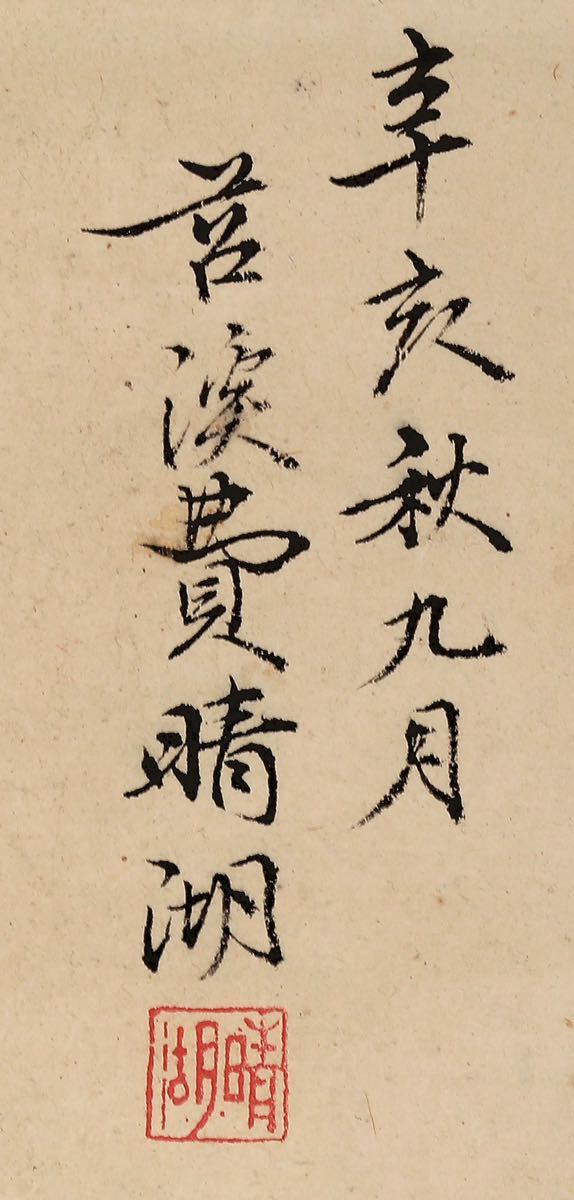 辛亥秋九月
苕溪費晴湖
晴湖